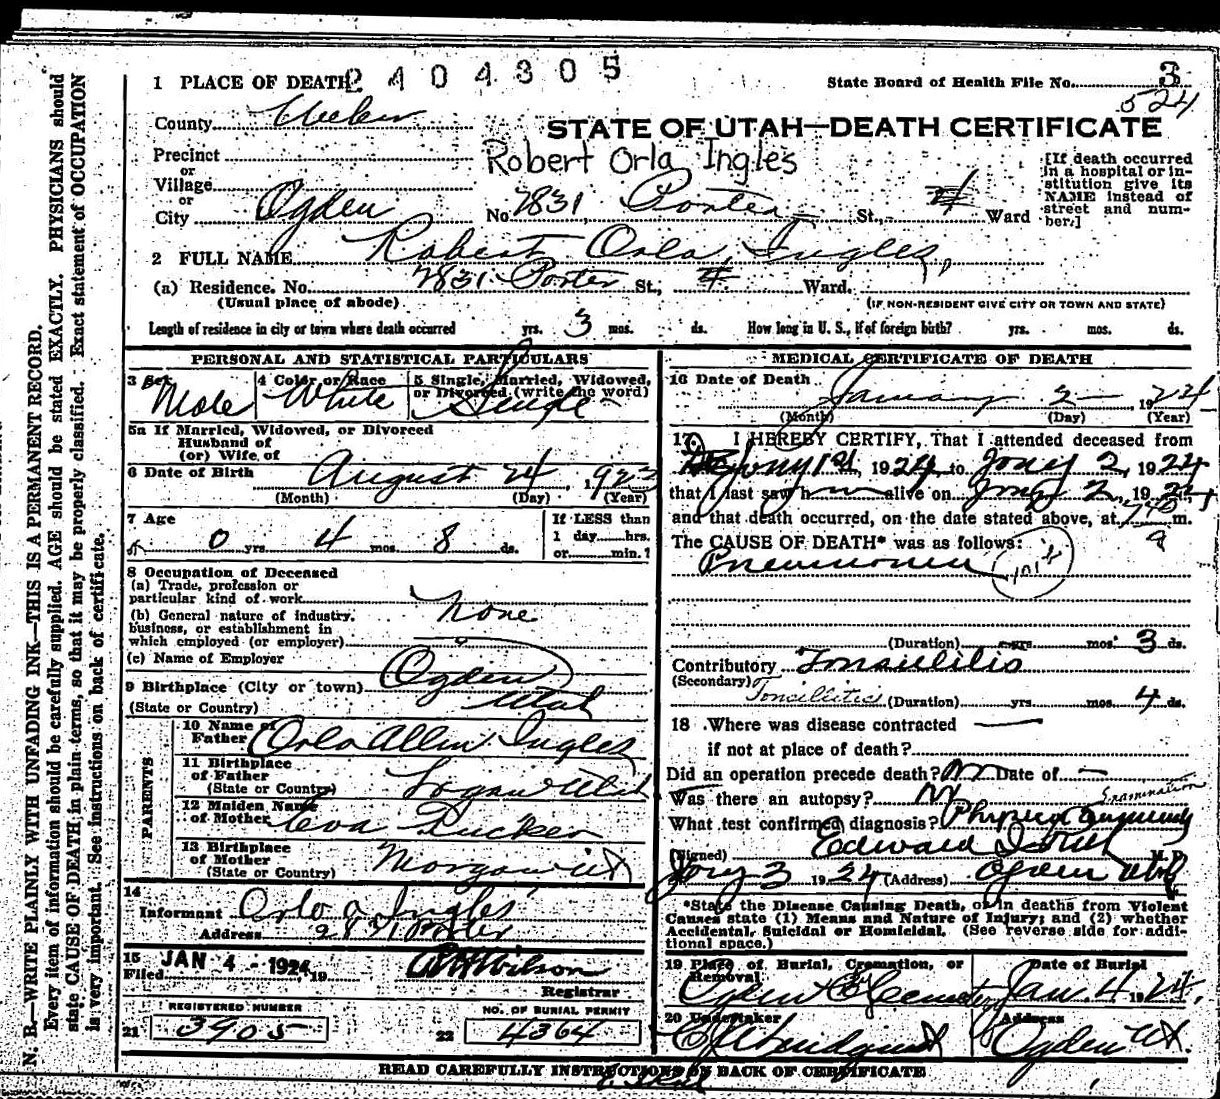 1 PLACE OF DEATH 2 4 0 4 3 0 5 State Board of Health File No. 3
524
County Weber
STATE OF UTAH—DEATH CERTIFICATE
Precinct
or
Village
or
City Ogden
Robert Orla Ingles
No. 2831 Porter St., 4 Ward
[If death occurred
in a hospital or in-
stitution give its
NAME instead of
street and num-
ber.]
2 FULL NAME Robert Orla Ingles,
(a) Residence. No. 2831 Porter St., 4 Ward.
(Usual place of abode) (IF NON-RESIDENT GIVE CITY OR TOWN AND STATE)
Length of residence in city or town where death occurred yrs. 3 mos. ds. How long in U. S., if of foreign birth? yrs. mos. ds.
PERSONAL AND STATISTICAL PARTICULARS
3 Sex Male
4 Color or Race White
5 Single, Married, Widowed,
or Divorced (write the word)
Single
5a If Married, Widowed, or Divorced
Husband of
(or) Wife of
6 Date of Birth August 24, 1923
(Month) (Day) (Year)
7 Age
0 yrs. 4 mos. 8 ds.
If LESS than
1 day hrs.
or min.?
8 Occupation of Deceased
(a) Trade, profession or
particular kind of work None
(b) General nature of industry,
business, or establishment in
which employed (or employer)
(c) Name of Employer
9 Birthplace (City or town) Ogden
(State or Country) Utah
PARENTS
10 Name of
Father Orla Allen Ingles
11 Birthplace
of Father Logan Utah
(State or Country)
12 Maiden Name
of Mother Eva Tucker
13 Birthplace
of Mother Morgan Ut
(State or Country)
14
Informant Orlo A Ingles
Address 2831 Porter
15
Filed JAN 4 - 1924 19 Wilson
Registrar
REGISTERED NUMBER
21 3905
NO. OF BURIAL PERMIT
22 4364
MEDICAL CERTIFICATE OF DEATH
16 Date of Death
January 2, 1924
(Month) (Day) (Year)
17 I HEREBY CERTIFY, That I attended deceased from
Jany 1st, 1924, to Jany 2, 1924
that I last saw him alive on Jany 2, 1924
and that death occurred, on the date stated above, at 740 m.
The CAUSE OF DEATH* was as follows: a
Pneumonia
(Duration) yrs. mos. 3 ds.
Contributory Tonsillitis
(Secondary) Toncillitis (Duration) yrs. mos. 4 ds.
18 Where was disease contracted
if not at place of death?
Did an operation precede death? No Date of —
Was there an autopsy? No Examination
What test confirmed diagnosis? Physical
(Signed) Edward I Rich M. D.
Jany 3 1924 (Address) Ogden Utah
*State the Disease Causing Death, or in deaths from Violent
Causes state (1) Means and Nature of Injury; and (2) whether
Accidental, Suicidal or Homicidal. (See reverse side for addi-
tional space.)
19 Place of Burial, Cremation, or
Removal
Ogden Cemetery
Date of Burial
Jan. 4 1924.
20 Undertaker
Lindquist
Address
Ogden Ut.
READ CAREFULLY INSTRUCTIONS ON BACK OF CERTIFICATE
N. B.—WRITE PLAINLY WITH UNFADING INK—THIS IS A PERMANENT RECORD.
Every item of information should be carefully supplied. AGE should be stated EXACTLY. PHYSICIANS should
state CAUSE OF DEATH in plain terms, so that it may be properly classified. Exact statement of OCCUPATION
is very important. See instructions on back of certificate.